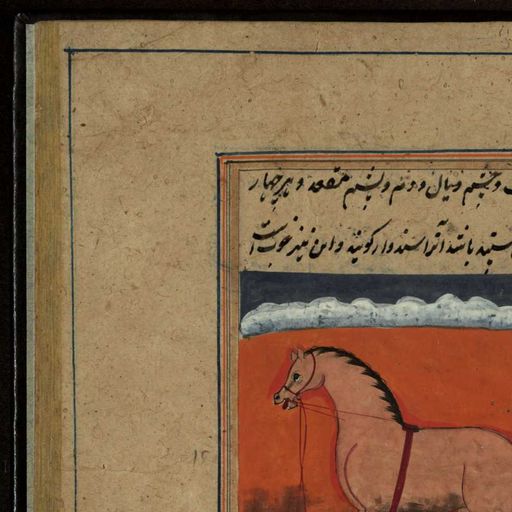 و چشم و یال و دم و پشم مقعد و هر چهار
سپید باشد آنرا سندوار کویند و این نیز خوب است